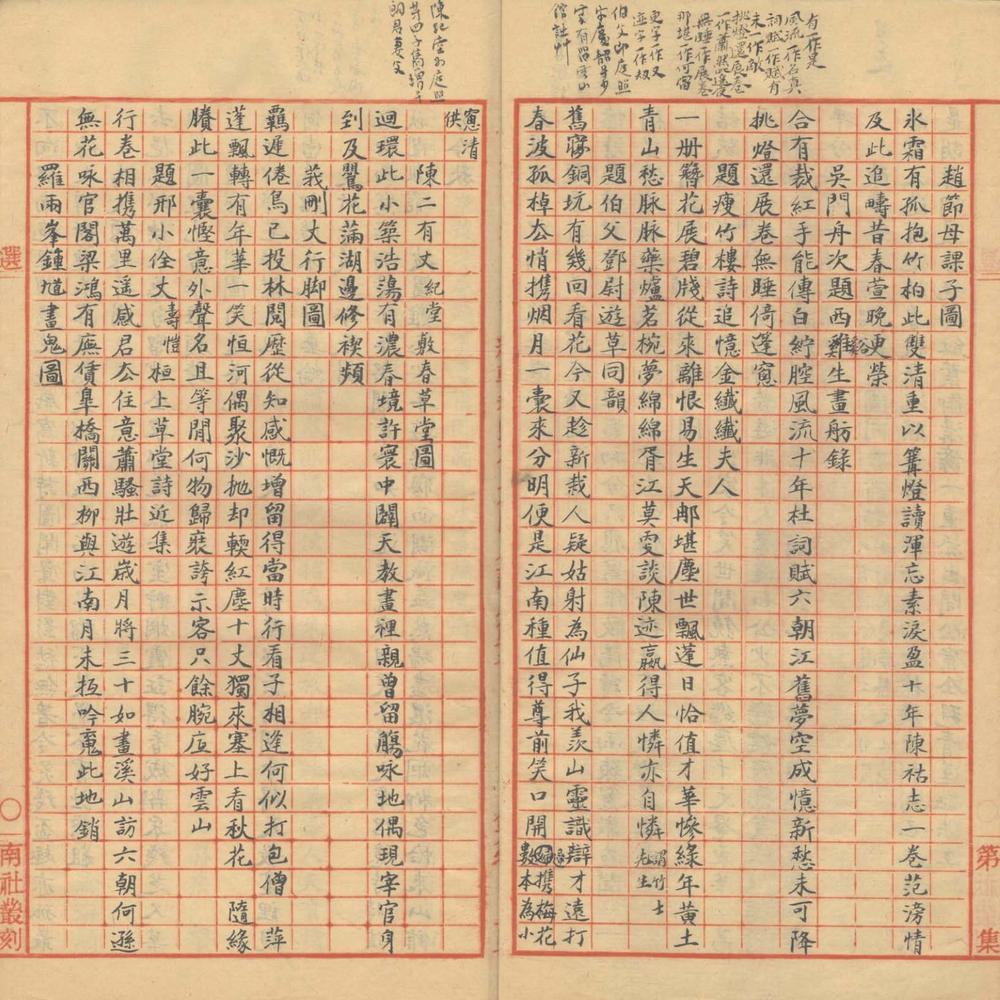 有一作是
風流一作名真
詞賦一作賦有
未一作敵
挑燈還展卷
一作蕭然遙夜
無睡一作展卷
那堪一作何當
更字一作又
迹字一作知
伯父印庭照
館社艸
趙節母課子圖
冰霜有孤抱竹柏此雙清重以篝燈讀渾忘素淚盈十年陳祜志一卷范滂情
及此追疇昔春萱晚更榮
吳門舟次題西谿生畫舫錄
合有裁紅手能傳白紵腔風流十年杜詞賦六朝江舊夢空成憶新愁未可降
挑燈還展卷無睡倚蓬窗
題瘦竹樓詩追憶金纖纖夫人
一册簪花展碧牋從來離恨易生天那堪塵世飄蓬日恰值才華慘緣年黃土
青山愁脉脉藥爐茗椀夢綿綿胥江莫更談陳迹贏得人憐亦自憐 謂竹士先生
題伯父鄧尉遊草同韻
舊寮銅坑有幾回看花今又趁新栽人疑姑射為仙子我羨山靈識辯才遠打
春波孤棹去悄携烟月一囊來分明便是江南種值得尊前笑口開 歸携梅花數本為小
窗清供
陳紀堂名庭照
陳二有丈紀堂敷春草堂圖
迴環此小築浩蕩有濃春境許寰中闢天教畫裡親曾留觴咏地偶現宰官身
到及鶯花滿湖邊修禊頻
莪剛丈行脚圖
羈遲倦鳥已投林閱歷從知感慨增留得當時行看子相逢何似打包僧萍
蓬飄轉有年華一笑恒河偶聚沙抛却輭紅塵十丈獨來塞上看秋花隨緣
賸此一囊慳意外聲名且等閒何物歸裝誇示客只餘腕底好雲山
題邢小佺丈壽愷桓上草堂詩近集
行卷相携萬里遥感君去住意蕭騷壯遊歲月將三十如畫溪山訪六朝何遜
無花咏官閣梁鴻有廡賃臯橋關西柳與江南月未抵吟䰟此地銷
羅兩峯鍾馗畫鬼圖
選
南社叢刻
第 集